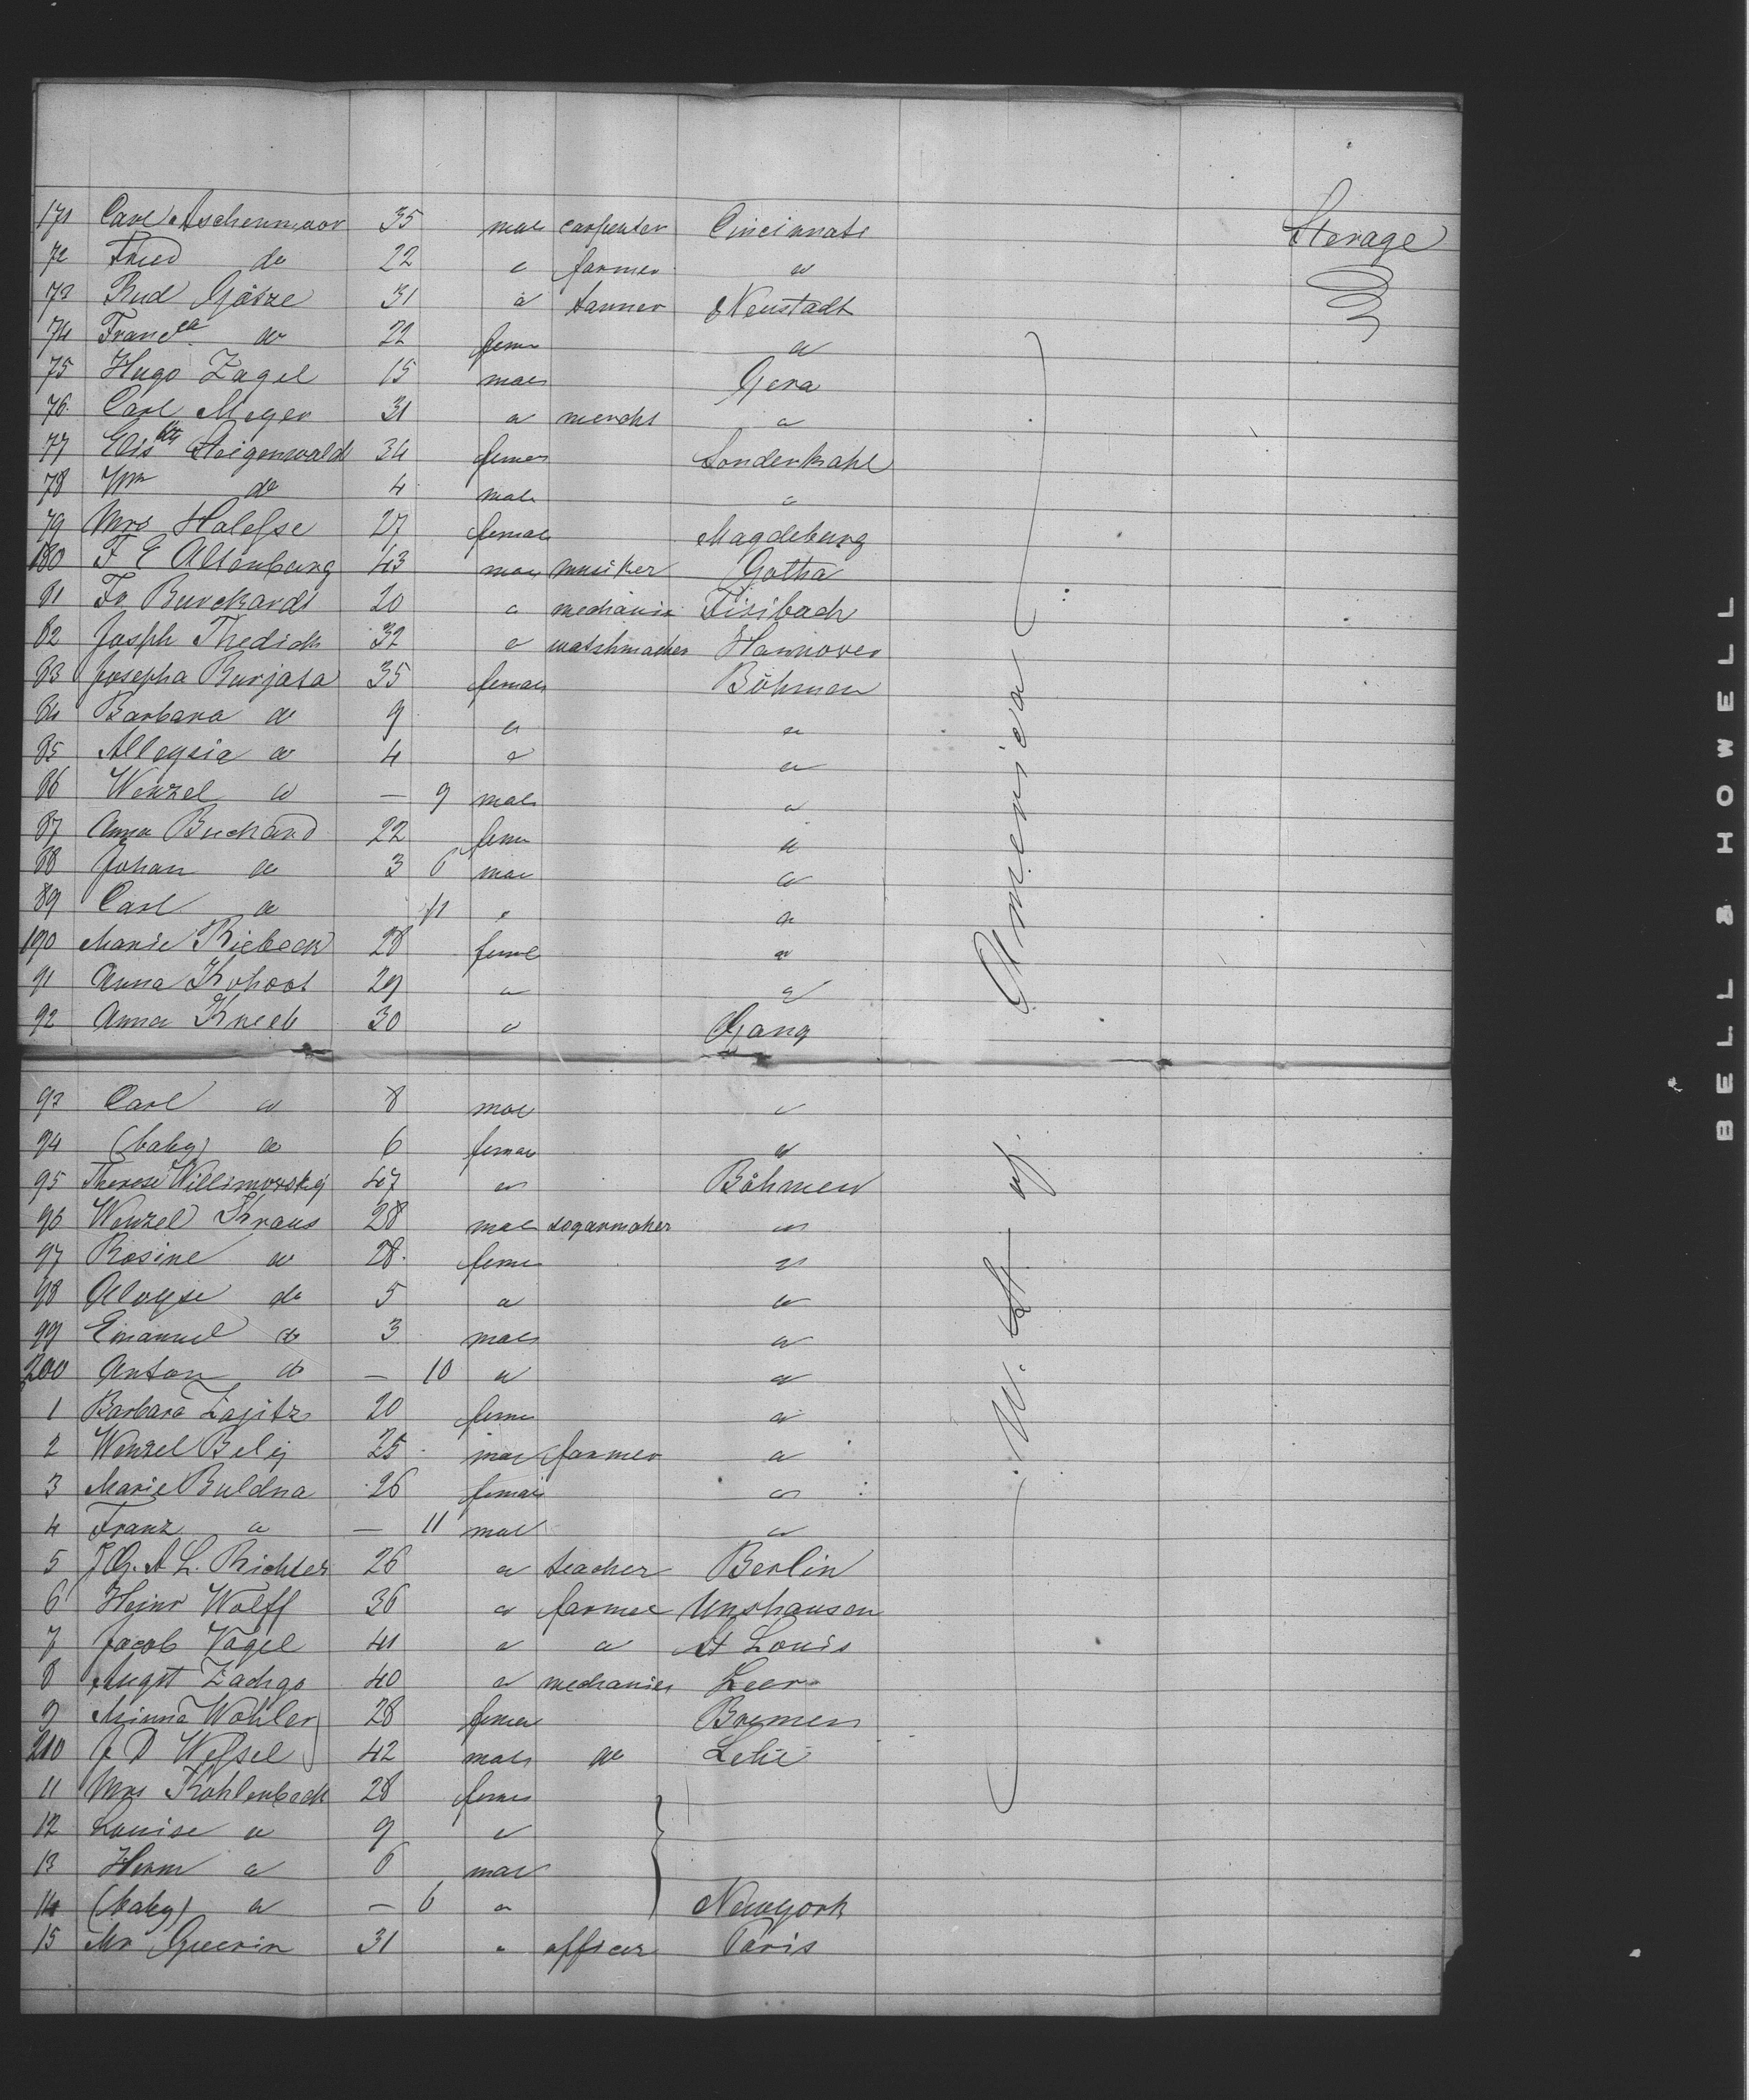 171 Carl Aschenmoor 35 male carpenter Cincinnati Sterage
72 Fried do 22 " farmer "
73 Rud Götze 31 " tanner Neustadt
74 Franc^ca " 22 fem "
75 Hugo Zagel 15 male Gera
76. Carl Meyer 31 " mercht "
77 Elis^bth Steigerwald 34 female Sonderkahl
78 Wm do 4 male "
79 Mrs Halesse 27 female Magdeburg
180 F E Altenburg 43 male musiker Gotha
81 Fr Burckardt 20 " mechanic Fisibach
82 Josph Thedick 32 " watchmacher Hannover
83 Josepha Burjata 35 female Böhmen
84 Barbara do 9 " "
85 Alloysia do 4 " "
86 Wenzel " — 9 male "
87 Anna Buchand 22 fem "
88 Johan do 3 6 male "
89 Carl do 11 " "
190 Marie Riebeck 28 feml "
91 Anna Kohoot 29 " "
92 Anna Kneeb 30 " Gang
93 Carl " 8 male "
94 (baby) do 6 female "
95 Therese Willimovskij 47 " Böhmen
96 Wenzel Kraus 28 male sogarmaker "
97 Rosine " 28 feme "
98 Aloyse do 5 " "
99 Emanuel do 3 male "
200 Anton do — 10 " "
1 Barbara Zajitz 20 feme "
2 Wenzel Belij 25 male farmer "
3 Marie Buldna 26 female "
4 Franz " — 11 male "
5 J G. A L. Richter 26 " teacher Berlin
6 Heinr Wolff 36 " farmer Unshausen
7 Jacob Vogel 41 " " St Louis
8 Augst Zachgo 40 " mechanics Leer
9 Minna Wohler 28 femea Bremen
210 J D Wessel 42 male do Lehe
11 Mrs Kohlenbeck 28 feme
12 Louise " 9 "
13 Herm " 6 male
14 (baby) " — 6 " Newyork
15 Mr Guerin 31 " officer Paris
U. St. of America
BELL & HOWELL